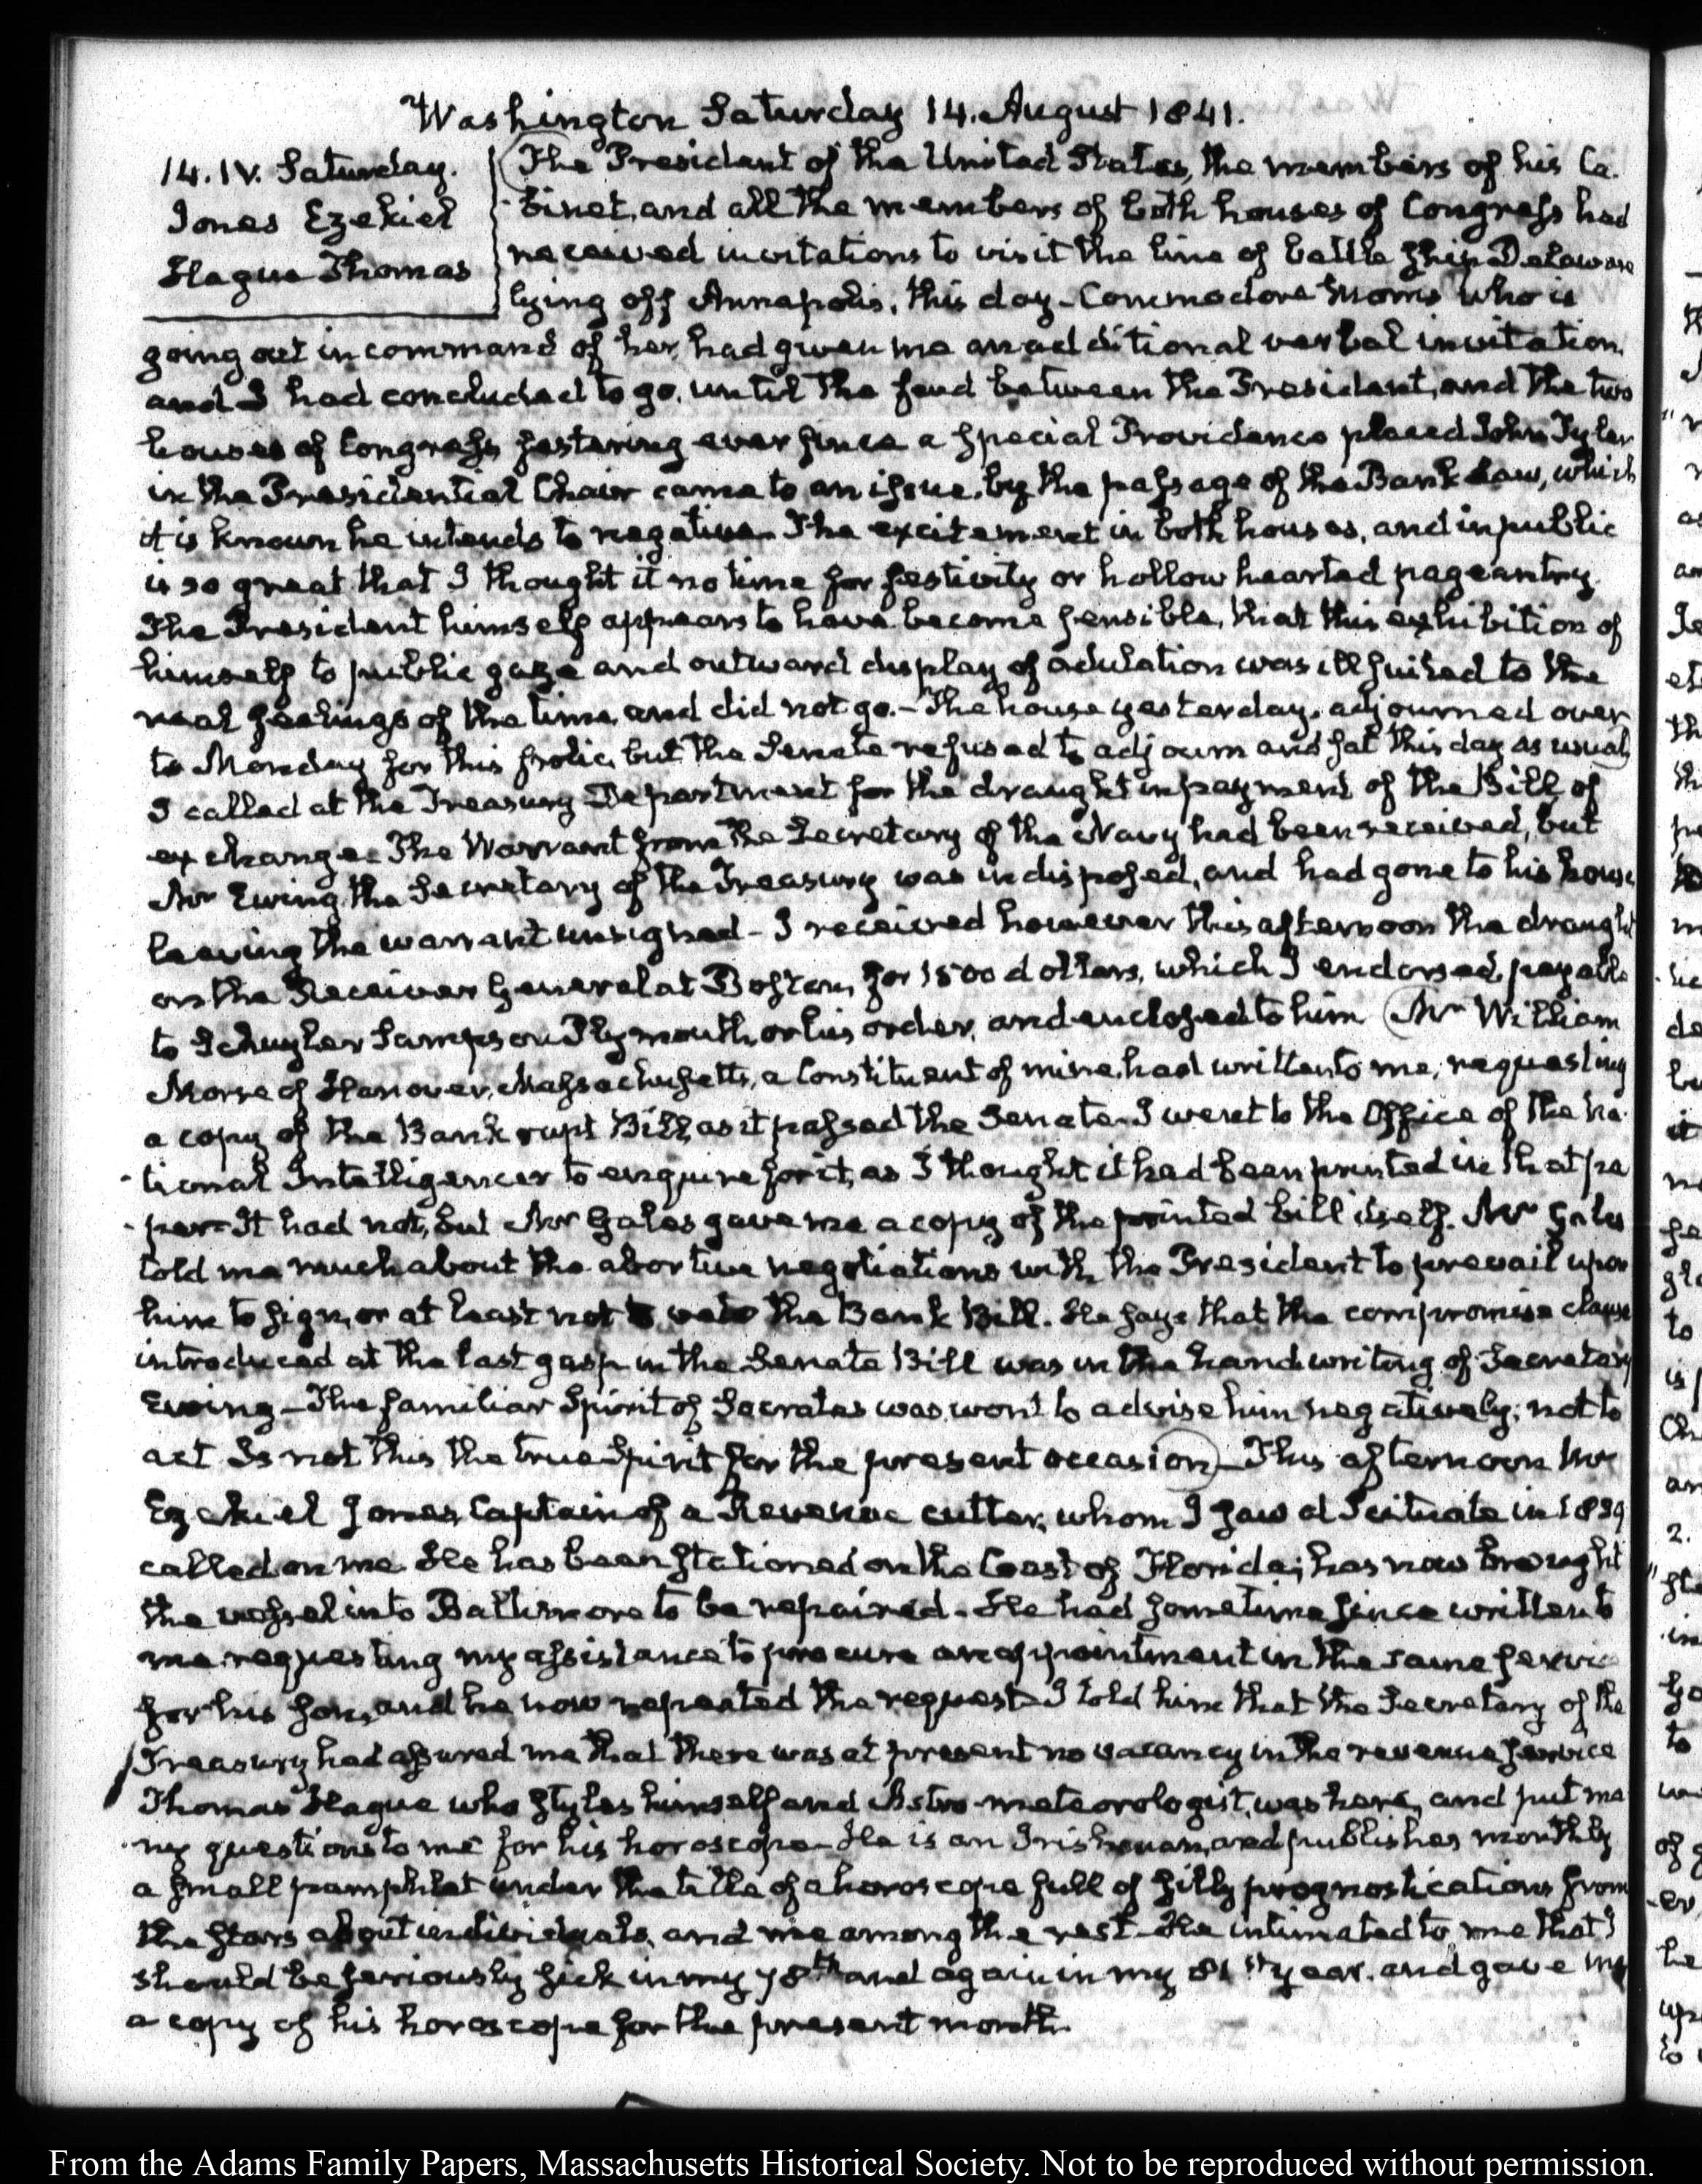 Washington Saturday 14. August 1841.
14. IV. Saturday.
Jones Ezekiel
Hague Thomas
The President of the United States, the members of his Ca-
-binet, and all the members of both houses of Congress had
received invitations to visit the line of battle ship Delaware
lying off Annapolis, this day - Commodore Morris who is
going out in command of her, had given me an additional verbal invitation,
and I had concluded to go, until the feud between the President, and the two
houses of Congress festering ever since a special Providence placed John Tyler
in the Presidential Chair came to an issue, by the passage of the Bank Law, which
it is known he intends to negative. The excitement in both houses, and in public
is so great that I thought it no time for festivity or hollow hearted pageantry.
The President himself appears to have become sensible, that this exhibition of
himself to public gaze and outward display of adulation was ill suited to the
real feelings of the time, and did not go. - The house yesterday, adjourned over
to Monday for this frolic, but the Senate refused to adjourn and sat this day as usual
I called at the Treasury Department for the draught in payment of the Bill of
exchange - The Warrant from the Secretary of the Navy had been received, but
Mr Ewing the Secretary of the Treasury was indisposed, and had gone to his house
leaving the warrant unsigned - I received however this afternoon the draught
on the Receiver General at Boston, for 1500 dollars, which I endorsed, payable
to Schuyler Sampson Plymouth, or his order, and enclosed to him Mr William
Morse of Hanover, Massachusetts, a Constituent of mine, had written to me, requesting
a copy of the Bankrupt Bill, as it passed the Senate. I went to the Office of the Na-
-tional Intelligencer to enquire for it, as I thought it had been printed in that pa
-per - It had not, but Mr Gales gave me a copy of the printed bill itself. Mr Gales
told me much about the abortive negotiations with the President to prevail upon
him to sign, or at least not to veto the Bank Bill. He says that the compromise clause
introduced at the last gasp in the Senate Bill was in the handwriting of Secretary
Ewing - The familiar Spirit of Socrates was wont to advise him negatively; not to
act Is not this the true Spirit for the present occasion - This afternoon Mr
Ezekiel Jones, Captain of a Revenue cutter, whom I saw at Scituate in 1839
called on me. He has been stationed on the Coast of Florida; has now brought
the vessel into Baltimore to be repaired - He had sometime since written to
me requesting my assistance to procure an appointment in the same service
for his son, and he now repeated the request - I told him that the Secretary of the
Treasury had assured me that there was at present no vacancy in the revenue service
Thomas Hague who styles himself and Astro-meteorologist, was here, and put ma
-ny questions to me for his horoscope - He is an Irishman, and publishes monthly
a small pamphlet under the title of a horoscope full of silly prognostications from
the stars about individuals, and me among the rest - He intimated to me that I
should be seriously sick in my 78th and again in my 81st year, and gave me
a copy of his horoscope for the present month.
From the Adams Family Papers, Massachusetts Historical Society. Not to be reproduced without permission.